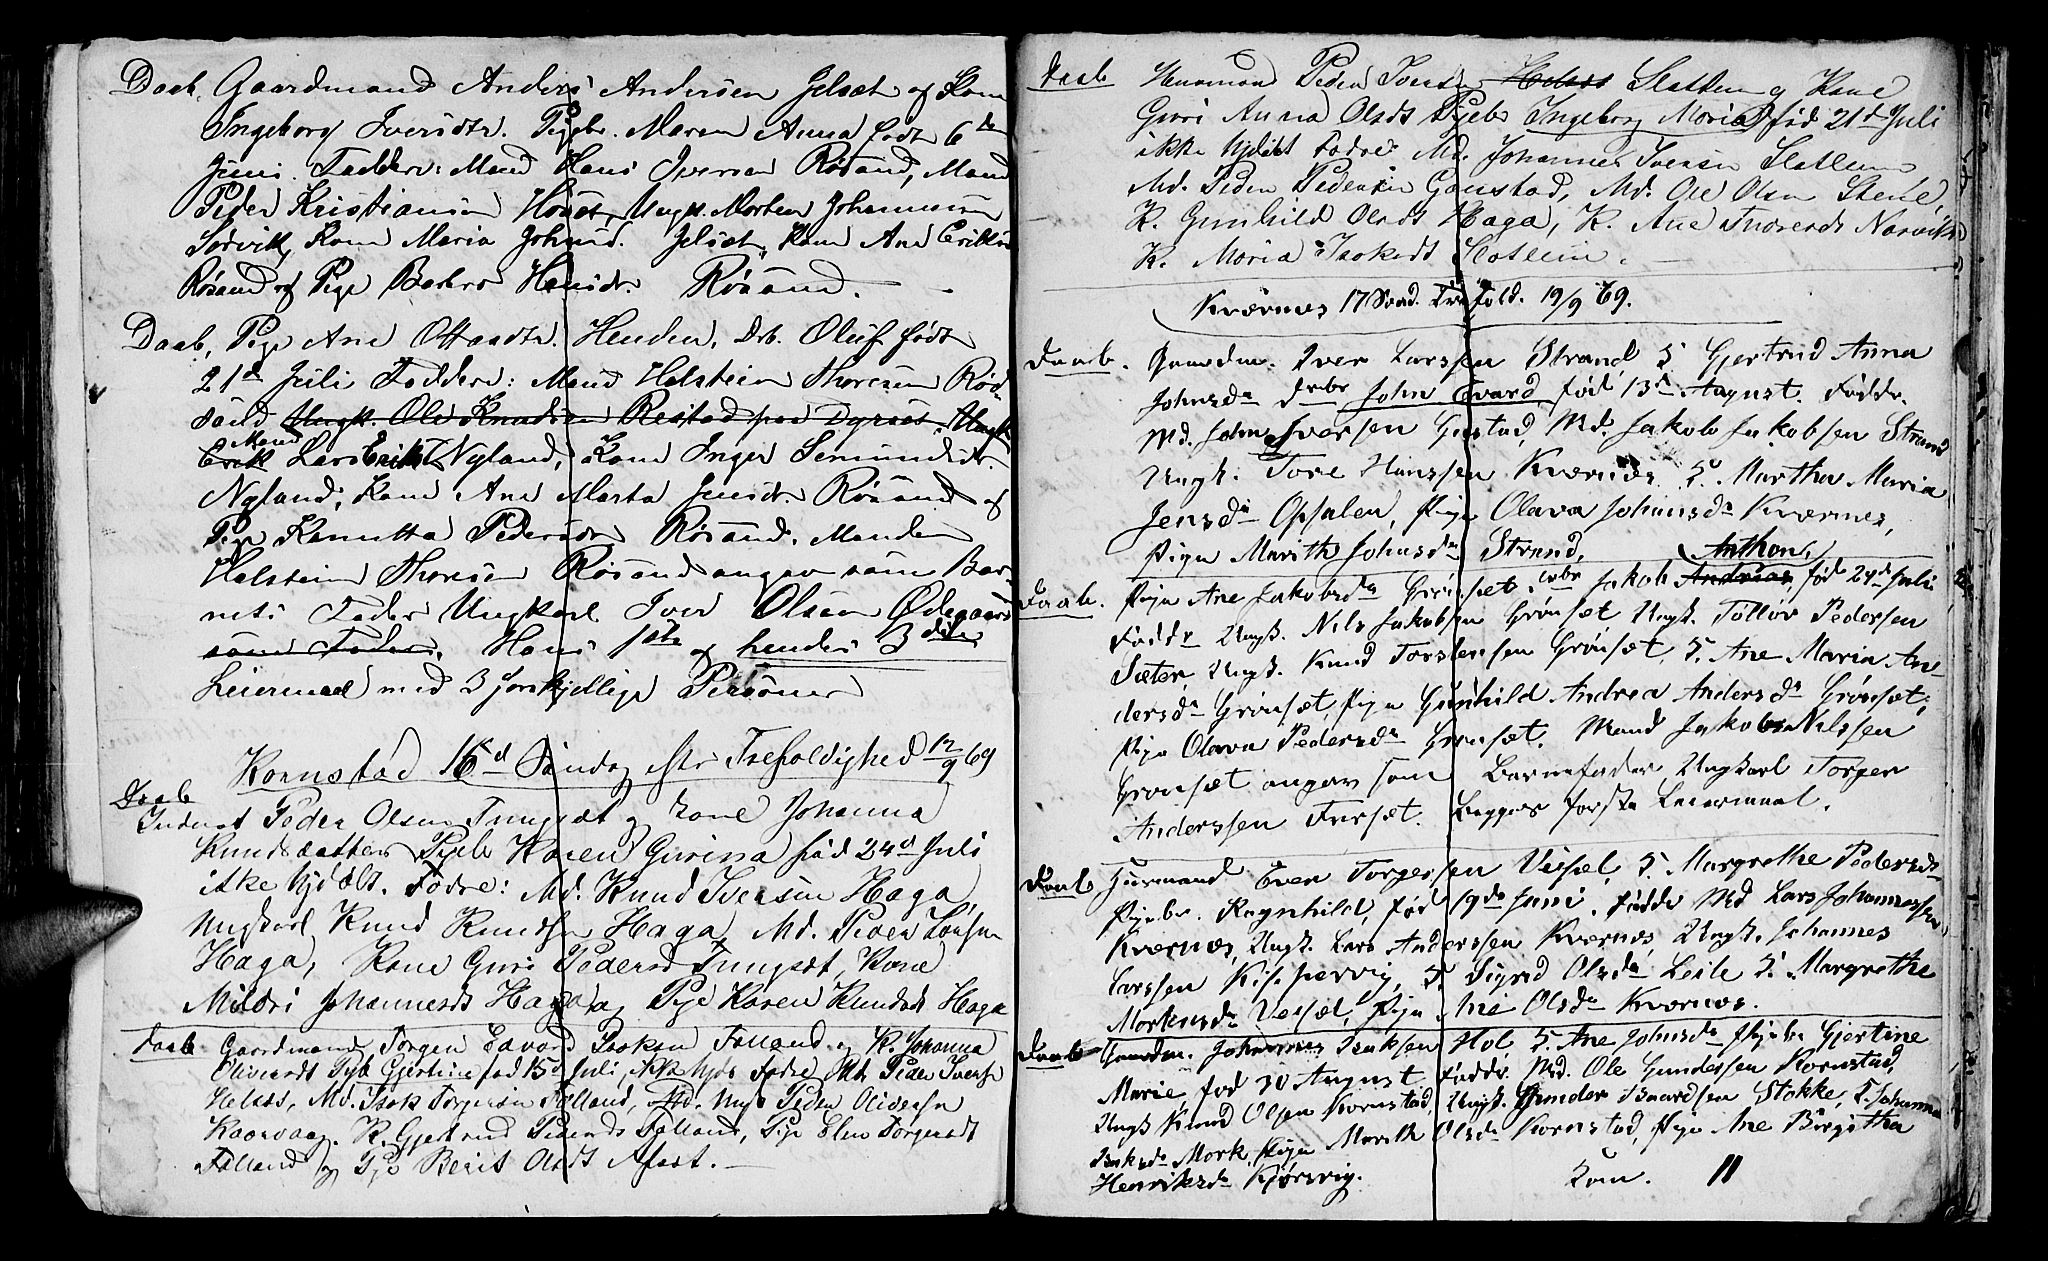 Daab, Gaardmand Anders Andersen Gelsæt og Kone
Ingeborg Iversdtr. Pigeb. Maren Anna født 6de
Juni. Faddere: Mand Hans Iversen Røsand, Mand
Peder Kristiansen Ungk. Morten Johannesen
Sørvik, Kone Maria Johnsd. Gelsæt, Kone Ane Eriksd
Røsand og Pige Hansdr. Røsand.
Daab, Pige Ane Henden, Drb. Oluf født
21de Juli Faddere: Mand Halstein Thoresen Røs-
sand Ungk. Ole Knudsen Reistad paa Dyrnes, Ungk.
Mand
Erik Lars Eriks. Nyland, Kone Inger Semundsdtr.
Nyland, Kone Ane Marta Jensdr. Røsand og
Pige Kanutta Pedersdr Røsand. Manden
Halstein Thoresen Røsand angav som Bar-
nets Fader Ungkarl Iver Olsen Ødegaard
som Fader. Hans 1ste og hendes 3die
Leiermaal med 3 forskjellige Personer
Kornstad 16d Søndag eftr Trefoldighed 12/9 69
Daab
Inderst Peder Olsen Tungsæt og Kone Johanna
Knudsdatter Pigeb Karen Gurina fød 24d Juli
ikke hjdøbt. Fadre: Md. Knud Iversen Haga,
Ungkarl Knud Knudsen Haga, Md. Peder Larsen
Haga, Kone Guri Pedersd Tungsæt, Kone
Mildri Johannesdt Haga og Pige Karen Knudsdt Haga
Daab Gaardmand Torger Edvard Isaksen Falland og K. Johanna
Oliversdt Pigb Gjertine fød 15d Juli, ikke hjdø Fadre Md. Peder Iversen
Helsøs, Md. Isak Torgersen Falland, Md. Ungk Peder Oliversen
Kaarvaag. K. Gjertrud Pedersdt Falland, Pige Elen Torgersdt
Falland og Pige Berit Olsdt
Daab Huusmand Peder Iversen Helsøs Slatlem og Kone
Guri Anna Olsdt Pigeb Ingeborg Maria fød 21d Juli
ikke hjdøbt Fadre Md. Johannes Iversen Slatlem
Md. Peder Pedersen Gaustad, Md. Ole Olsen Stene,
K. Gunhild Olsdt Haga, K. Ane Naavik
K. Maria Isaksdt Slatlem.
Kværnes 17 Sønd. Trefold. 19/9 69.
Daab. Gaardm. Iver Larssen Strand, H. Gjertrud Anna
Johnsda drbr John Evard fød 13d August. Faddr.
Md. John Iversen Gustad, Md. Jakob Jakobsen Strand
Ungk. Tore Hanssen Kværnes. H. Martha Maria
Jensda Opsalen, Pign Olava Johansda Kværnes,
Pign Marith Johnsda Strand.
Anthon,
Daab. Pign Ane Jakobsda Grønset, drbr Jakob Andreas, fød 24d Juli
Faddr Ungk. Nils Jakobsen Grønset Ungk. Tollov Pedersen
Sæter, Ungk. Knud Torstensen Grønset, H. Ane Maria An-
dersda Grønset, Pign Gunhild Andrea Andersda Grønset,
Pign Olava Pedersda Grønset. Mand Jakob Nilssen
Grønset angav som Barnefader, Ungkarl Torger
Anderssen Furset. Begges første Leiermaal.
Daab Huusmand Even Torgerssen Vesset, H. Margrethe Pedersda
Pigebr. Ragnhild, fød 19de Juni, Faddr Md Lars Johannessen
Kværnes, Ungk. Lars Anderssen Kværnes, Ungk. Johannes
Larssen H. Sigrid Olsda Leite H. Margrethe
Vesset, Pign Ane Olsda Kværnes.
Daab Gaardm. Johannes Isaksen Hol H. Ane Johnsda Pigebr Gjertine
Marie fød 30 August Faddr. Md. Ole Gunderssen Kornstad,
Ungk Knud Olsen Kornstad, Ungk. Gunder Baardsen Stokke, H. Johanna
Isaksda Mork, Pign Marith Olsda Kornstad, Pign Ane Birgitha
Henriksda Kjørsvig. Kom. 11